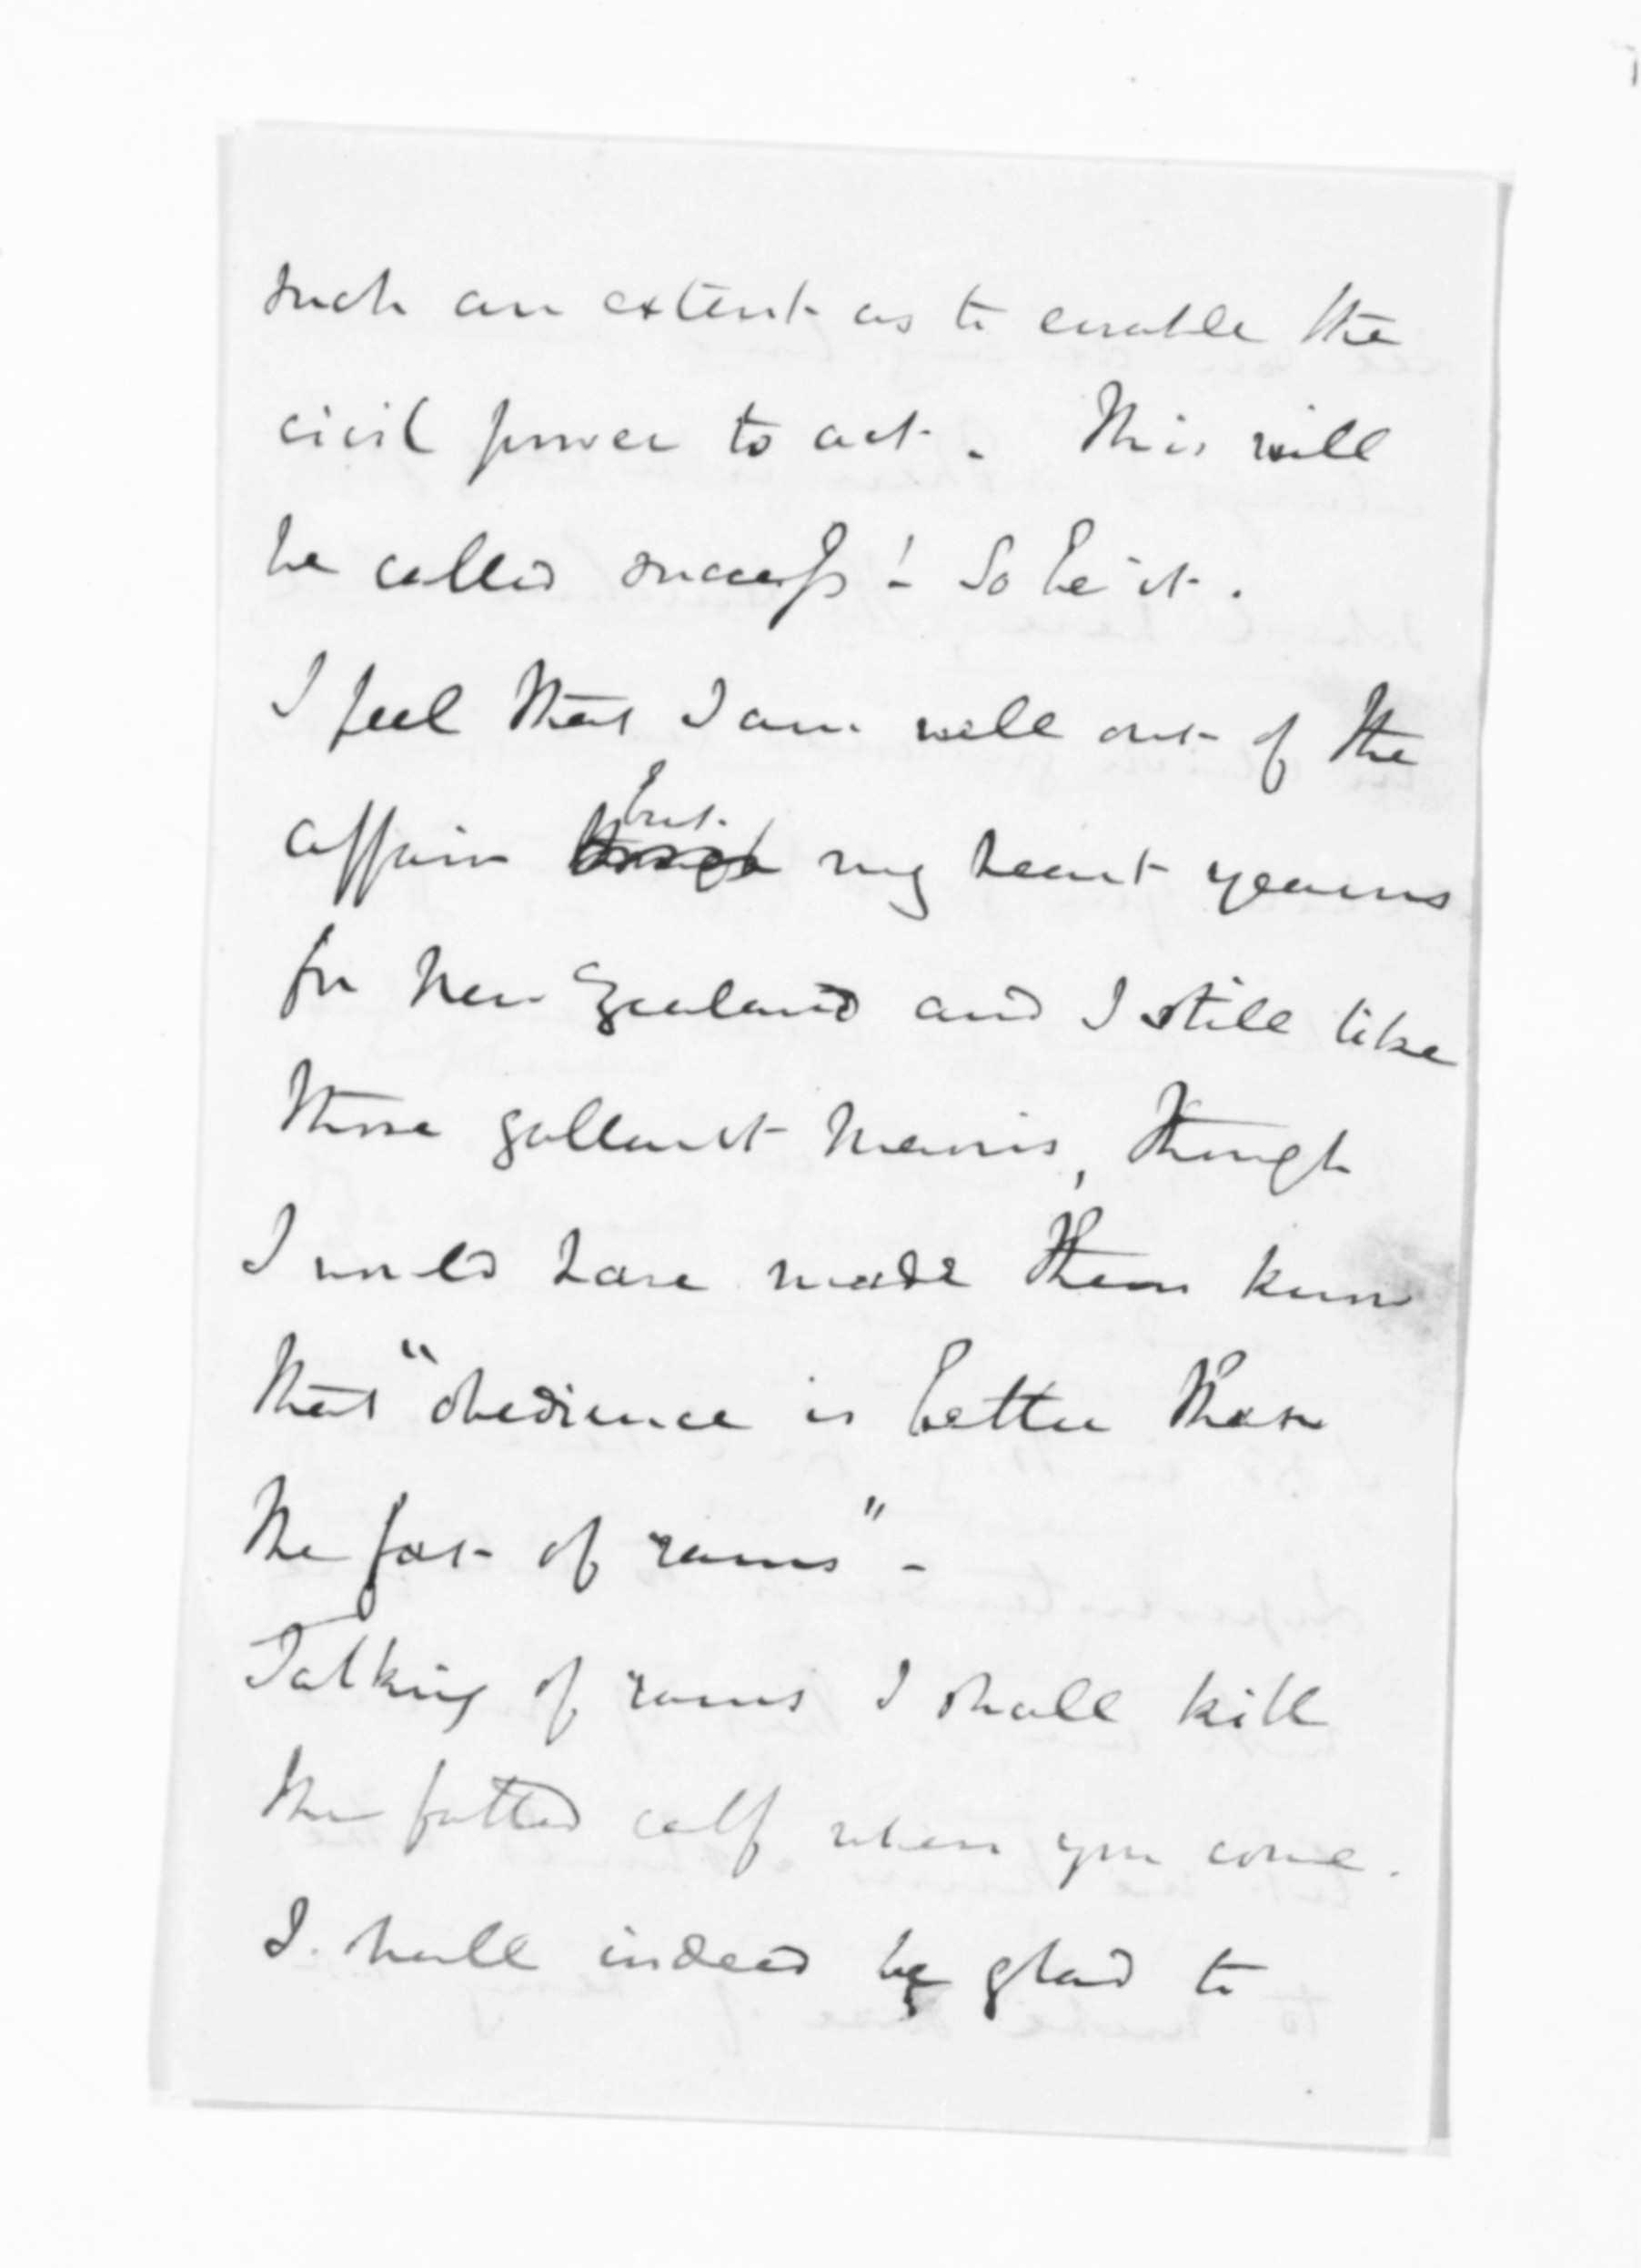 such an extent as to enable the
civil power to act. This will
be called success! So be it.
I feel that I am well out of the
affair but my heart yearns
for New Zealand and I still like
those gallant Maoris, though
I would have made them know
that "obedience is better than
the fat of rams" -
Talking of rams I shall kill
the fatted calf when you come.
I shall indeed be glad to